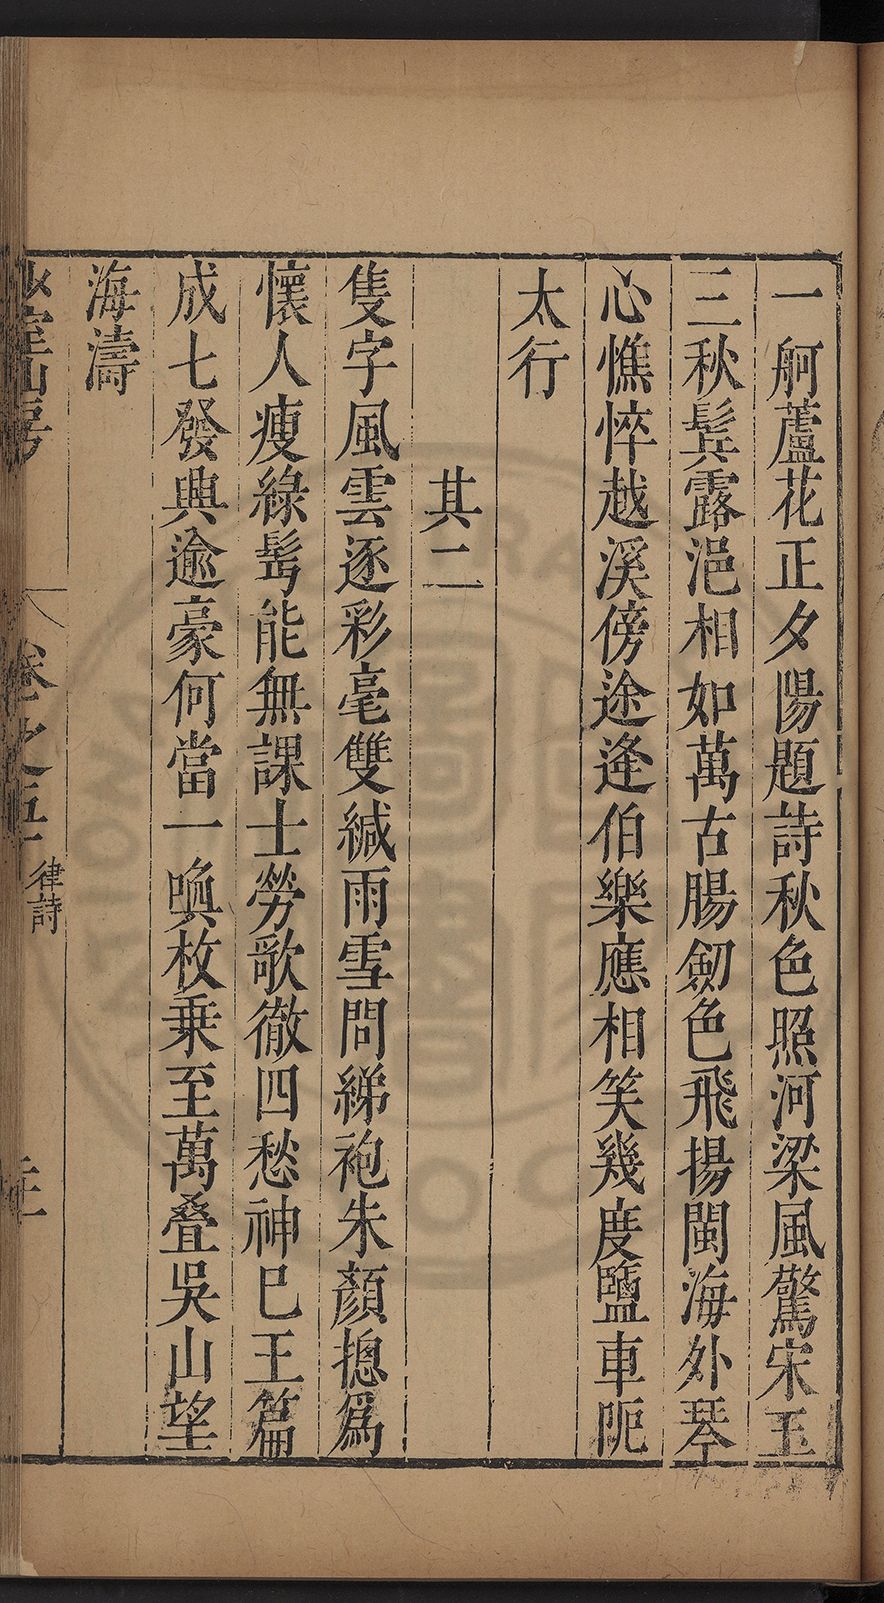 一舸蘆花正夕陽題詩秋色照河梁風驚宋玉
三秋鬂露浥相如萬古腸劒色飛揚閩海外琴
心憔悴越溪傍途逢伯樂應相笑幾度鹽車阨
太行
其二
隻字風雲逐彩毫雙緘雨雪問綈袍朱顏摠為
懷人瘦綠髩能無課士勞歌徹四愁神已王篇
成七發興逾豪何當一喚枚乗至萬叠吳山望
海濤
室山房
卷之五
律詩